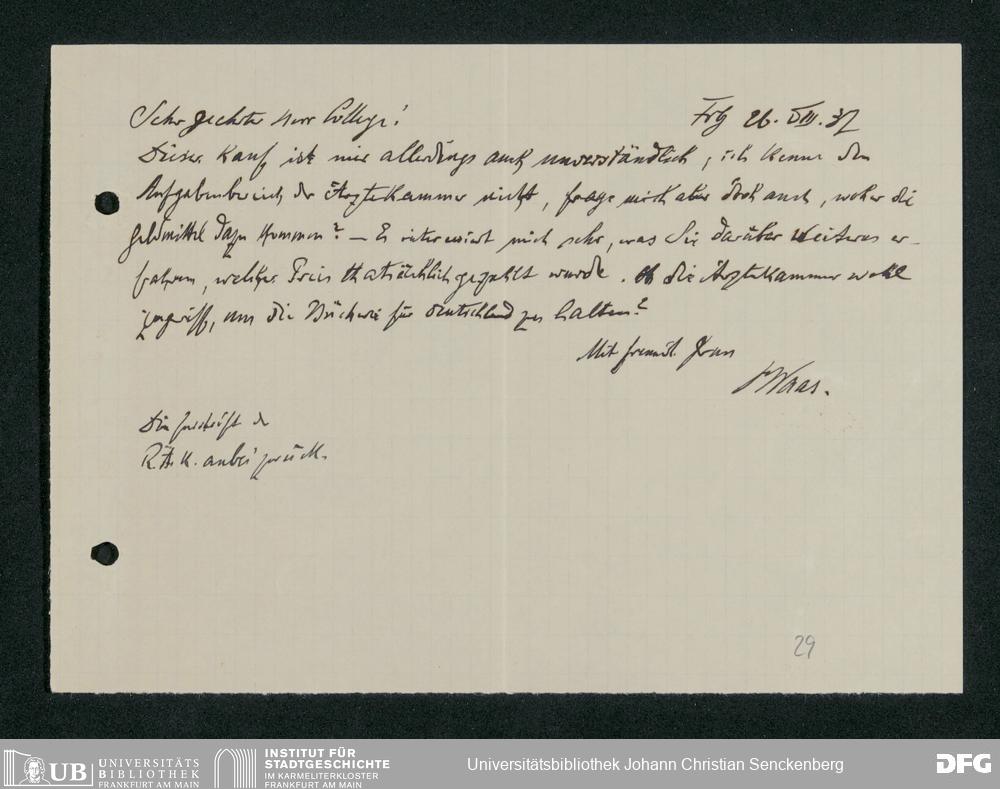 Frbg 26. VIII. 37
Sehr geehrter Herr College!
Dieser Kauf ist mir allerdings auch unverständlich, ich kenne den
Aufgabenbereich der Ärztekammer nicht, frage mich aber doch auch, woher die
Geldmittel dazu kommen? – Es interessiert mich sehr, was Sie darüber weiteres er-
fahren, welcher Preis thatsächlich gezahlt wurde. Ob die Ärztekammer wohl
zugriff, um die Bücherei für Deutschland zu halten?
Mit freundl.
Waas.
Die Zuschrift der
R.Ä.K. anbei zurück.
29
UB UNIVERSITÄTS
BIBLIOTHEK
FRANKFURT AM MAIN
INSTITUT FÜR
STADTGESCHICHTE
IM KARMELITERKLOSTER
FRANKFURT AM MAIN
Universitätsbibliothek Johann Christian Senckenberg
DFG